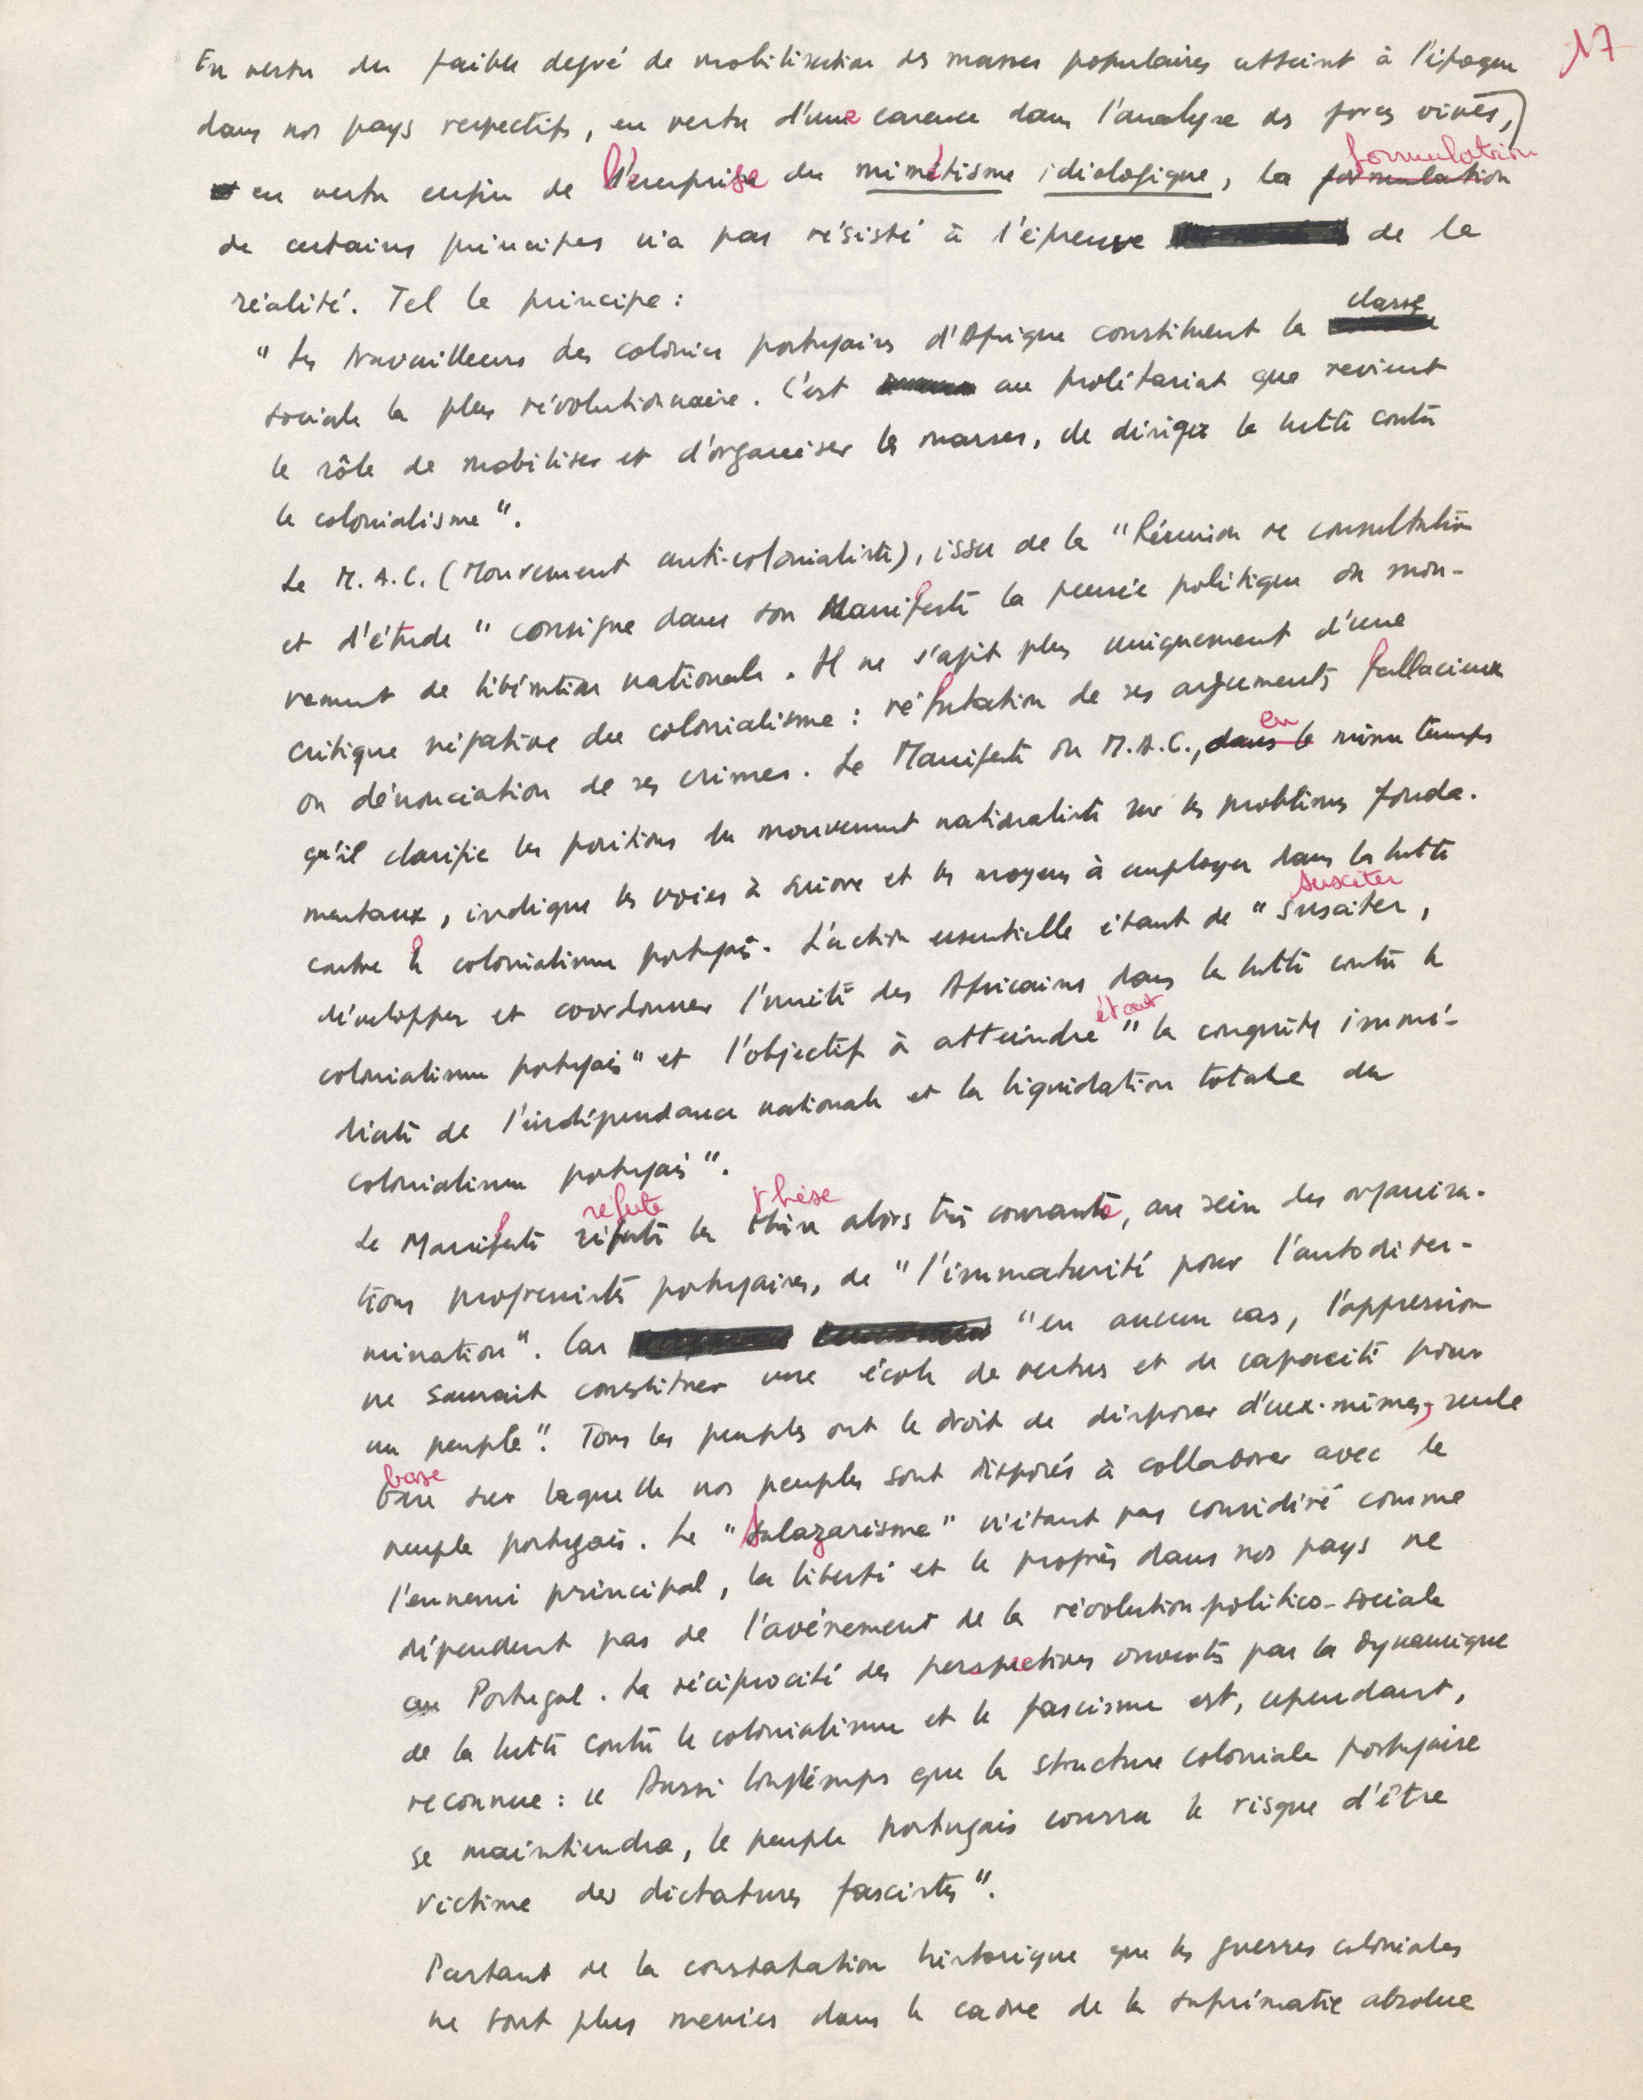 17
En vertu du faible degré de mobilisation des masses populaires atteint à l'époque
dans nos pays respectifs, en vertu d'une carence dans l'analyse des forces vives,
en vertu enfin de l'emprise du mimétisme idéologique, la formulation
de certains principes n'a pas résisté à l'épreuve de la
réalité. Tel le principe :
" Les travailleurs des colonies portugaises d'Afrique constituent la classe
sociale la plus révolutionnaire. C'est au prolétariat que revient
le rôle de mobiliser et d'organiser les masses, de diriger la lutte contre
le colonialisme ".
Le M.A.C. (Mouvement anti-colonialiste), issu de la "Réunion de consultation
et d'étude " consigne dans son Manifeste la pensée politique du mou-
vement de libération nationale. Il ne s'agit plus uniquement d'une
critique négative du colonialisme : réfutation de ses arguments fallacieux
ou dénonciation de ses crimes. Le Manifeste du M.A.C., en même temps
qu'il clarifie les positions du mouvement nationaliste sur les problèmes fonda-
mentaux, indique les voies à suivre et les moyens à employer dans la lutte
contre le colonialisme portugais. L'action essentielle étant de " susciter,
développer et coordonner l'unité des Africains dans la lutte contre le
colonialisme portugais " et l'objectif à atteindre étant " la conquête immé-
diate de l'indépendance nationale et la liquidation totale du
colonialisme portugais ".
Le Manifeste réfute la thèse alors très courante, au sein des organisa-
tions progressistes portugaises, de " l'immaturité pour l'autodéter-
mination ". Car " en aucun cas, l'oppression
ne saurait constituer une école de vertus et de capacité pour
un peuple ". Tous les peuples ont le droit de disposer d'eux-mêmes, seule
base sur laquelle nos peuples sont disposés à collaborer avec le
peuple portugais. Le " Salazarisme " n'étant pas considéré comme
l'ennemi principal, la liberté et le progrès dans nos pays ne
dépendent pas de l'avènement de la révolution politico-sociale
au Portugal. La réciprocité des perspectives ouvertes par la dynamique
de la lutte contre le colonialisme et le fascisme est, cependant,
reconnue : " Aussi longtemps que la structure coloniale portugaise
se maintiendra, le peuple portugais courra le risque d'être
victime des dictatures fascistes ".
Partant de la constatation historique que les guerres coloniales
ne sont plus menées dans le cadre de la suprématie absolue